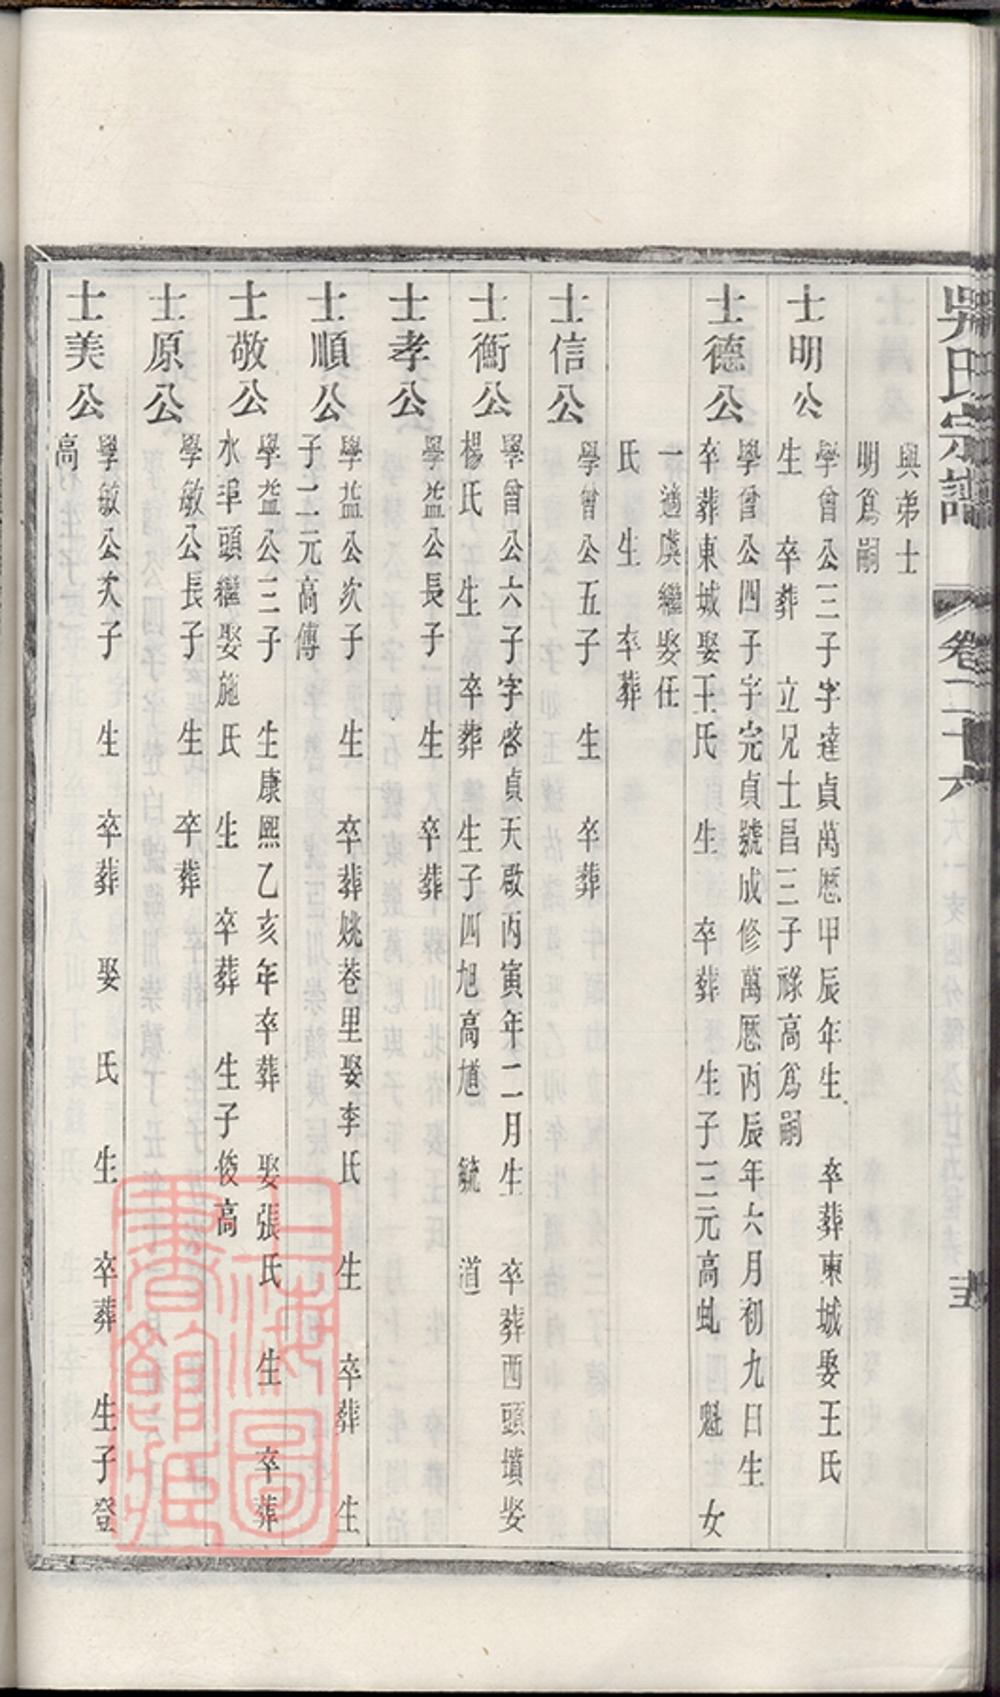 吳氏宗譜 卷二十六
與弟士
明爲嗣
士明公 學曾公三子字達貞萬曆甲辰年生 卒葬東城娶王氏
生 卒葬 立兄士昌三子祿高爲嗣
士德公 學曾公四子字完貞號成修萬曆丙辰年六月初九日生
卒葬東城娶王氏 生 卒葬 生子三元高虬 魁 女
一適虞繼娶任
氏 生 卒葬
士信公 學曾公五子 生 卒葬
士衡公 學曾公六子字啓貞天啟丙寅年二月生 卒葬西頭墳娶
楊氏 生 卒葬 生子四旭高馗 毓 道
士孝公 學益公長子 生 卒葬
士順公 學益公次子 生 卒葬姚巷里娶李氏 生 卒葬 生
子二元高傅
士敬公 學益公三子 生康熙乙亥年卒葬 娶張氏 生 卒葬
水埠頭繼娶施氏 生 卒葬 生子俊高
士原公 學敏公長子 生 卒葬
士美公 學敏公次子 生 卒葬 娶 氏 生 卒葬 生子登
高
上海圖書館藏